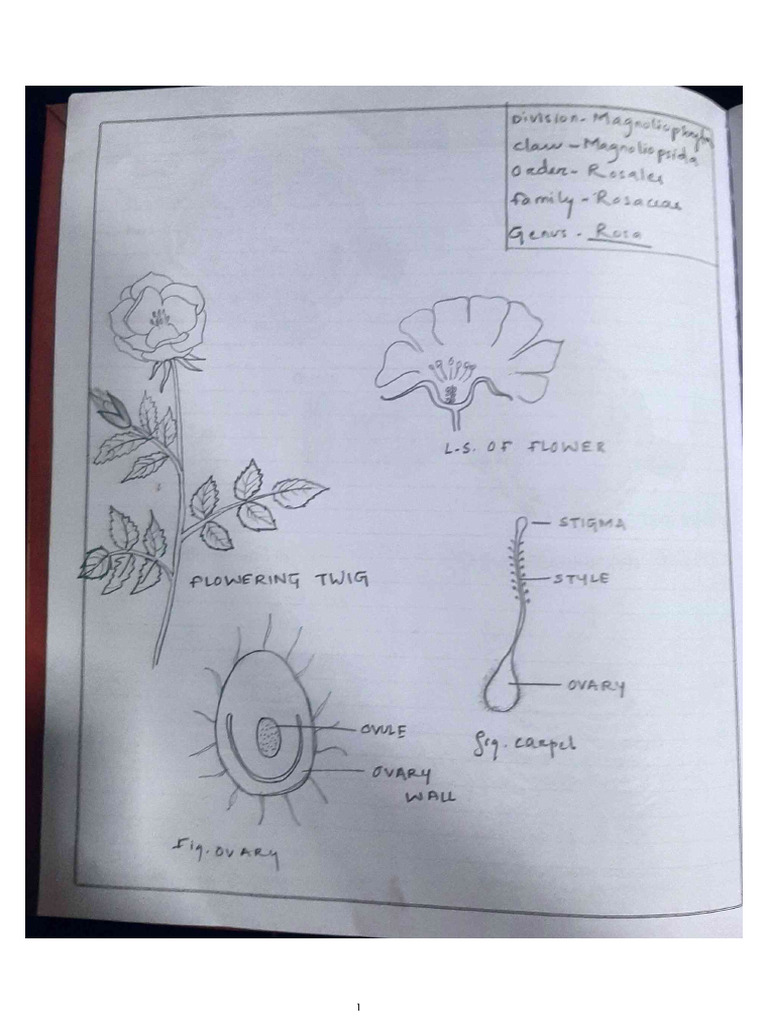 Division - Magnoliophyta
class - Magnoliopsida
Order - Rosales
family - Rosaceae
Genus - Rosa
L.S. OF FLOWER
STIGMA
STYLE
FLOWERING TWIG
OVARY
OVULE
fig. carpel
OVARY
WALL
Fig. OVARY
1